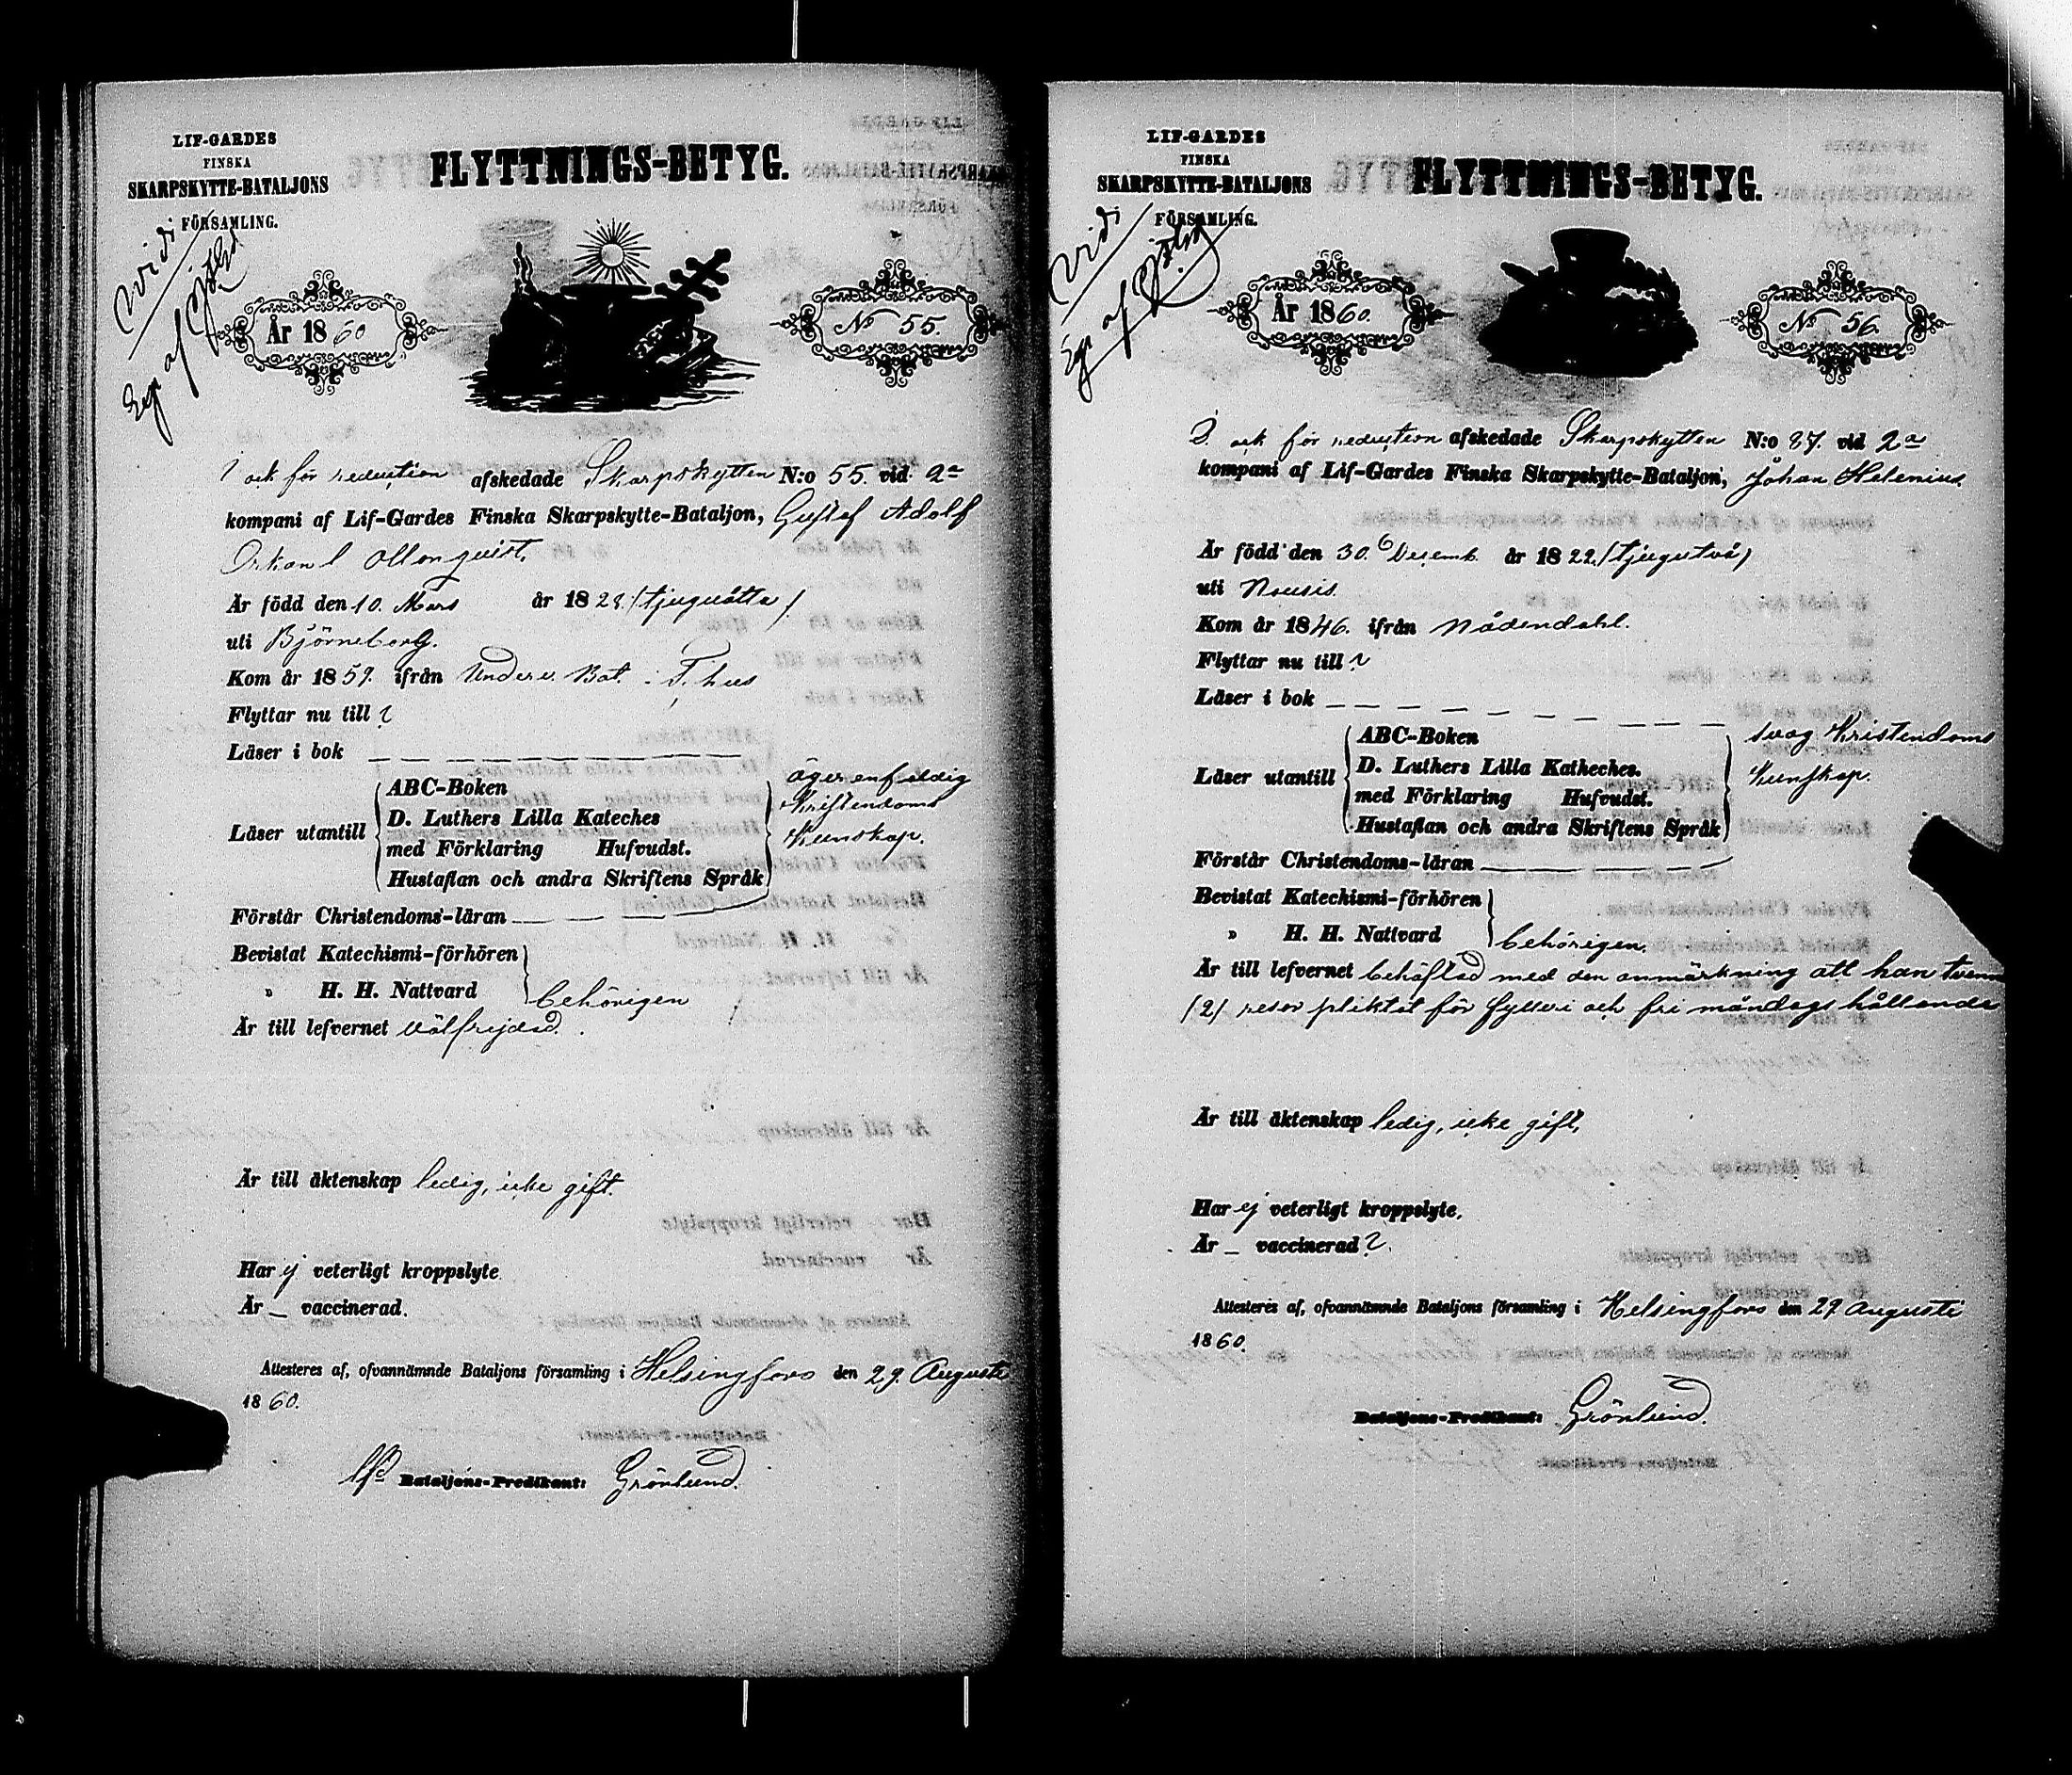 LIF-GARDES
FINSKA
SKARPSKYTTE-BATALJONS
FÖRSAMLING.
FLYTTNINGS-BETYG.
Vidi
År 1860
No 55.
och för reduction afskedade Skarpskytten N:o 55. vid 2a
kompani af Lif-Gardes Finska Skarpskytte-Bataljon, Gustaf Adolf
Är född den 10. Mars år 1828. (tjuguåtta)
uti Björneborg.
Kom år 1859. ifrån Underv. Bat. i T. hus
Flyttar nu till ?
Läser i bok
Läser utantill
ABC-Boken
D. Luthers Lilla Kateches
med Förklaring Hufvudst.
Hustaflan och andra Skriftens Språk
äger enfaldig
Kristendoms
Kunskap.
Förstår Christendoms-läran
Bevistat Katechismi-förhören
" H. H. Nattvard
behörigen
Är till lefvernet välfrejdad.
Är till äktenskap ledig, icke gift.
Har ej veterligt kroppslyte
Är — vaccinerad.
Attesteres af, ofvannämnde Bataljons församling i Helsingfors den 29. Augusti
1860.
Bataljons-Predikant: Grönlund.
LIF-GARDES
FINSKA
SKARPSKYTTE-BATALJONS
FÖRSAMLING.
FLYTTNINGS-BETYG.
Vidi
År 1860.
No 56.
och för reduction afskedade Skarpskytten N:o 87. vid 2a
kompani af Lif-Gardes Finska Skarpskytte-Bataljon, Johan Helenius.
Är född den 30. Decemb. år 1822. (tjugutvå)
uti Nousis.
Kom år 1846. ifrån Nådendahl.
Flyttar nu till ?
Läser i bok
Läser utantill
ABC-Boken
D. Luthers Lilla Katheches.
med Förklaring Hufvudst.
Hustaflan och andra Skriftens Språk
svag Kristendoms
Kunskap.
Förstår Christendoms-läran
Bevistat Katechismi-förhören
" H. H. Nattvard
behörigen.
Är till lefvernet behäftad med den anmärkning att han
(2) resor pliktat för fylleri och fri måndags hållande
Är till äktenskap ledig, icke gift,
Har ej veterligt kroppslyte.
Är — vaccinerad ?.
Attesteres af, ofvannämnde Bataljons församling i Helsingfors den 29 Augusti
1860.
Bataljons-Predikant: Grönlund.